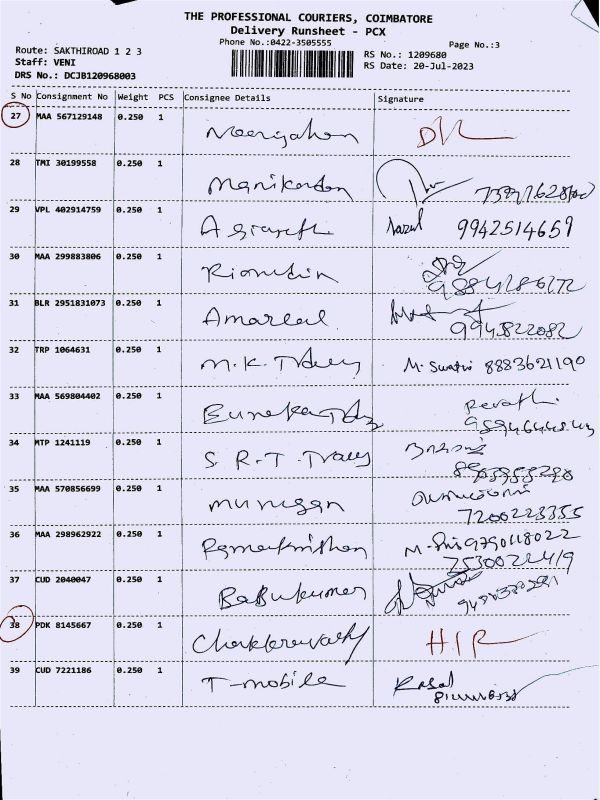 THE PROFESSIONAL COURIERS, COIMBATORE
Delivery Runsheet - PCX
Phone No.:0422-3505555
Page No.:3
Route: SAKTHIROAD 1 2 3
RS No.: 1209680
Staff: VENI
RS Date: 20-Jul-2023
DRS No.: DCJB120968003
S No Consignment No Weight PCS Consignee Details Signature
27 MAA 567129148 0.250 1
28 TMI 30199558 0.250 1 Manikandan
29 VPL 402914759 0.250 1 9942514659
30 MAA 299883806 0.250 1
31 BLR 2951831073 0.250 1 Amarlal 9943822082
32 TRP 1064631 0.250 1 M.K. Tdrs M. Swathi 8883621190
33 MAA 569804402 0.250 1 Revathi
34 MTP 1241119 0.250 1 S.R.T.
35 MAA 570856699 0.250 1 Murugan 7200223355
36 MAA 298962922 0.250 1 Ramakrishnan 9790118022
7530022419
37 CUD 2040047 0.250 1 Babukumar
38 PDK 8145667 0.250 1 Chakkaravathy
39 CUD 7221186 0.250 1 T-mobile